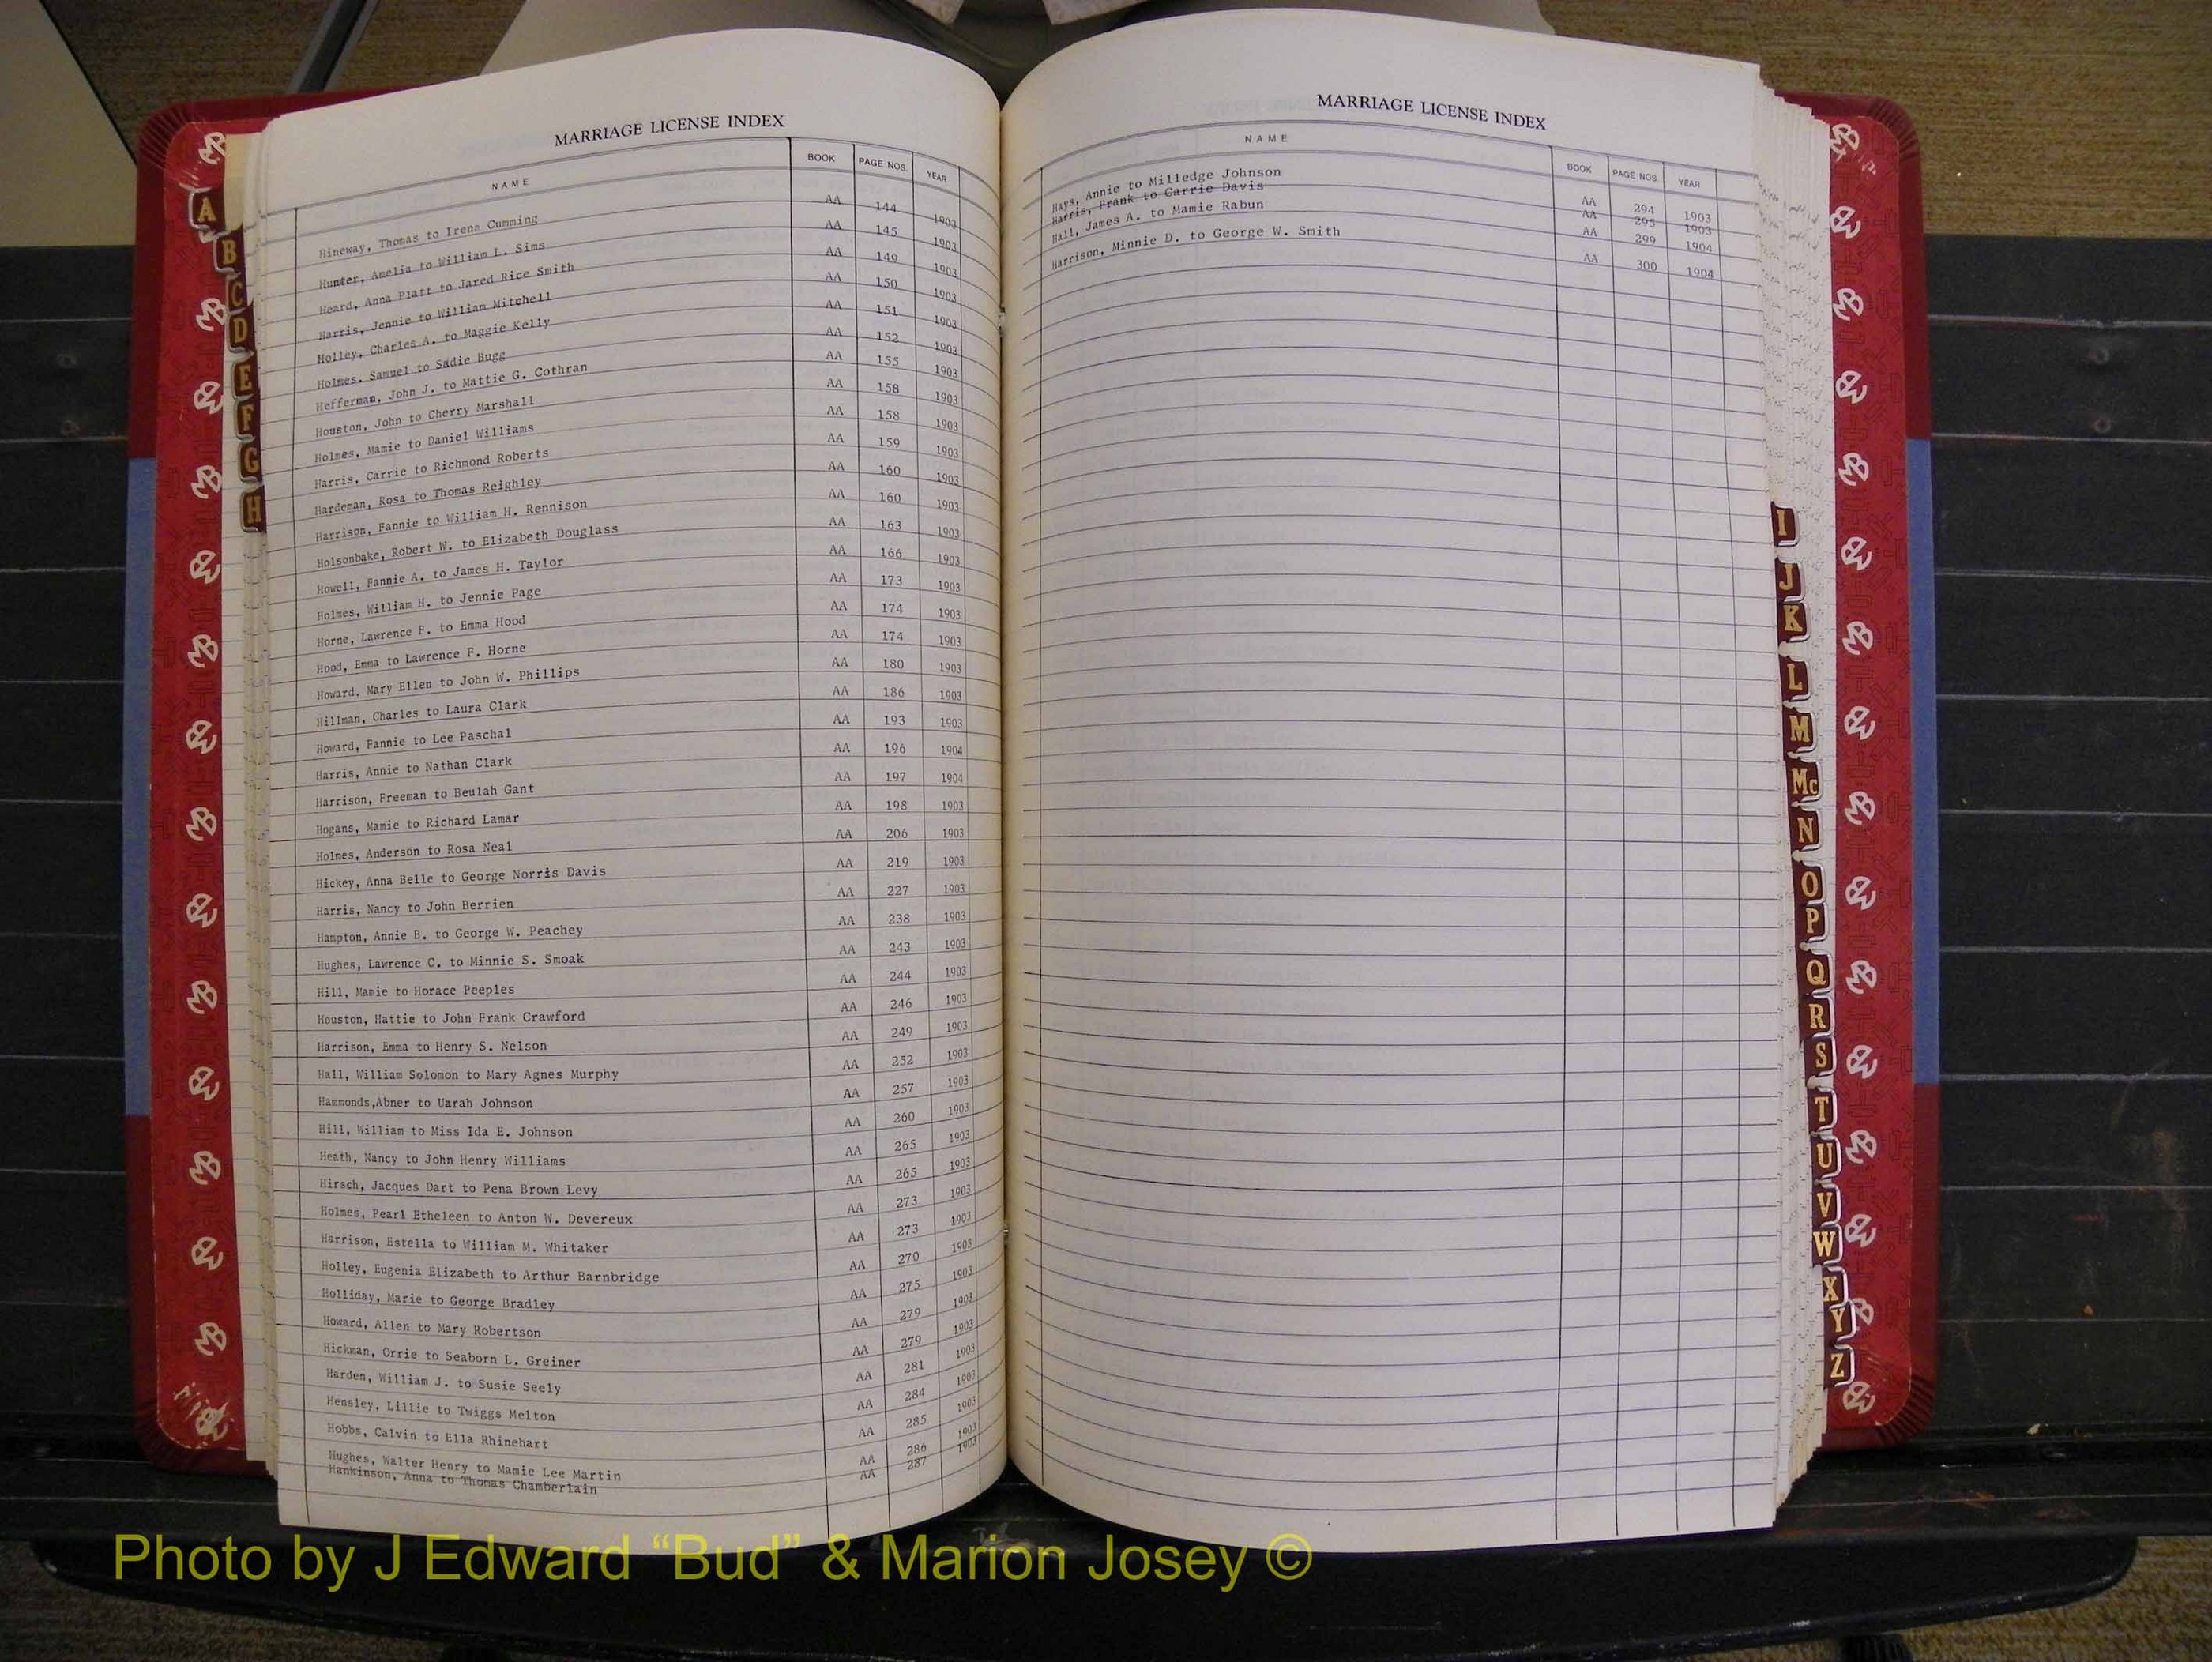 MARRIAGE LICENSE INDEX
NAME BOOK PAGE NOS. YEAR
Hineway, Thomas to Irene Cumming AA 144 1903
Hunter, Amelia to William L. Sims AA 145 1903
Heard, Anna Platt to Jared Rice Smith AA 149 1903
Harris, Jennie to William Mitchell AA 150 1903
Holley, Charles A. to Maggie Kelly AA 151 1903
Holmes, Samuel to Sadie Bugg AA 152 1903
Hefferman, John J. to Mattie G. Cothran AA 155 1903
Houston, John to Cherry Marshall AA 158 1903
Holmes, Mamie to Daniel Williams AA 158 1903
Harris, Carrie to Richmond Roberts AA 159 1903
Hardeman, Rosa to Thomas Reighley AA 160 1903
Harrison, Fannie to William H. Rennison AA 160 1903
Holsonbake, Robert W. to Elizabeth Douglass AA 163 1903
Howell, Fannie A. to James H. Taylor AA 166 1903
Holmes, William H. to Jennie Page AA 173 1903
Horne, Lawrence F. to Emma Hood AA 174 1903
Hood, Emma to Lawrence F. Horne AA 174 1903
Howard, Mary Ellen to John W. Phillips AA 180 1903
Hillman, Charles to Laura Clark AA 186 1903
Howard, Fannie to Lee Paschal AA 193 1903
Harris, Annie to Nathan Clark AA 196 1904
Harrison, Freeman to Beulah Gant AA 197 1904
Hogans, Mamie to Richard Lamar AA 198 1903
Holmes, Anderson to Rosa Neal AA 206 1903
Hickey, Anna Belle to George Norris Davis AA 219 1903
Harris, Nancy to John Berrien AA 227 1903
Hampton, Annie B. to George W. Peachey AA 238 1903
Hughes, Lawrence C. to Minnie S. Smoak AA 243 1903
Hill, Mamie to Horace Peeples AA 244 1903
Houston, Hattie to John Frank Crawford AA 246 1903
Harrison, Emma to Henry S. Nelson AA 249 1903
Hall, William Solomon to Mary Agnes Murphy AA 252 1903
Hammonds,Abner to Uarah Johnson AA 257 1903
Hill, William to Miss Ida E. Johnson AA 260 1903
Heath, Nancy to John Henry Williams AA 265 1903
Hirsch, Jacques Dart to Pena Brown Levy AA 265 1903
Holmes, Pearl Etheleen to Anton W. Devereux AA 273 1903
Harrison, Estella to William M. Whitaker AA 273 1903
Holley, Eugenia Elizabeth to Arthur Barnbridge AA 270 1903
Holliday, Marie to George Bradley AA 275 1903
Howard, Allen to Mary Robertson AA 279 1903
Hickman, Orrie to Seaborn L. Greiner AA 279 1903
Harden, William J. to Susie Seely AA 281 1903
Hensley, Lillie to Twiggs Melton AA 284 1903
Hobbs, Calvin to Ella Rhinehart AA 285 1903
Hughes, Walter Henry to Mamie Lee Martin AA 286 1903
Hankinson, Anna to Thomas Chamberlain AA 287 1903
MARRIAGE LICENSE INDEX
NAME BOOK PAGE NOS. YEAR
Hays, Annie to Milledge Johnson AA 294 1903
Harris, Frank to Carrie Davis AA 295 1903
Hall, James A. to Mamie Rabun AA 299 1904
Harrison, Minnie D. to George W. Smith AA 300 1904
A
B
C
D
E
F
G
H
I
J
K
L
M
Mc
N
O
P
Q
R
S
T
U
V
W
X
Y
Z
Photo by J Edward “Bud” & Marion Josey ©